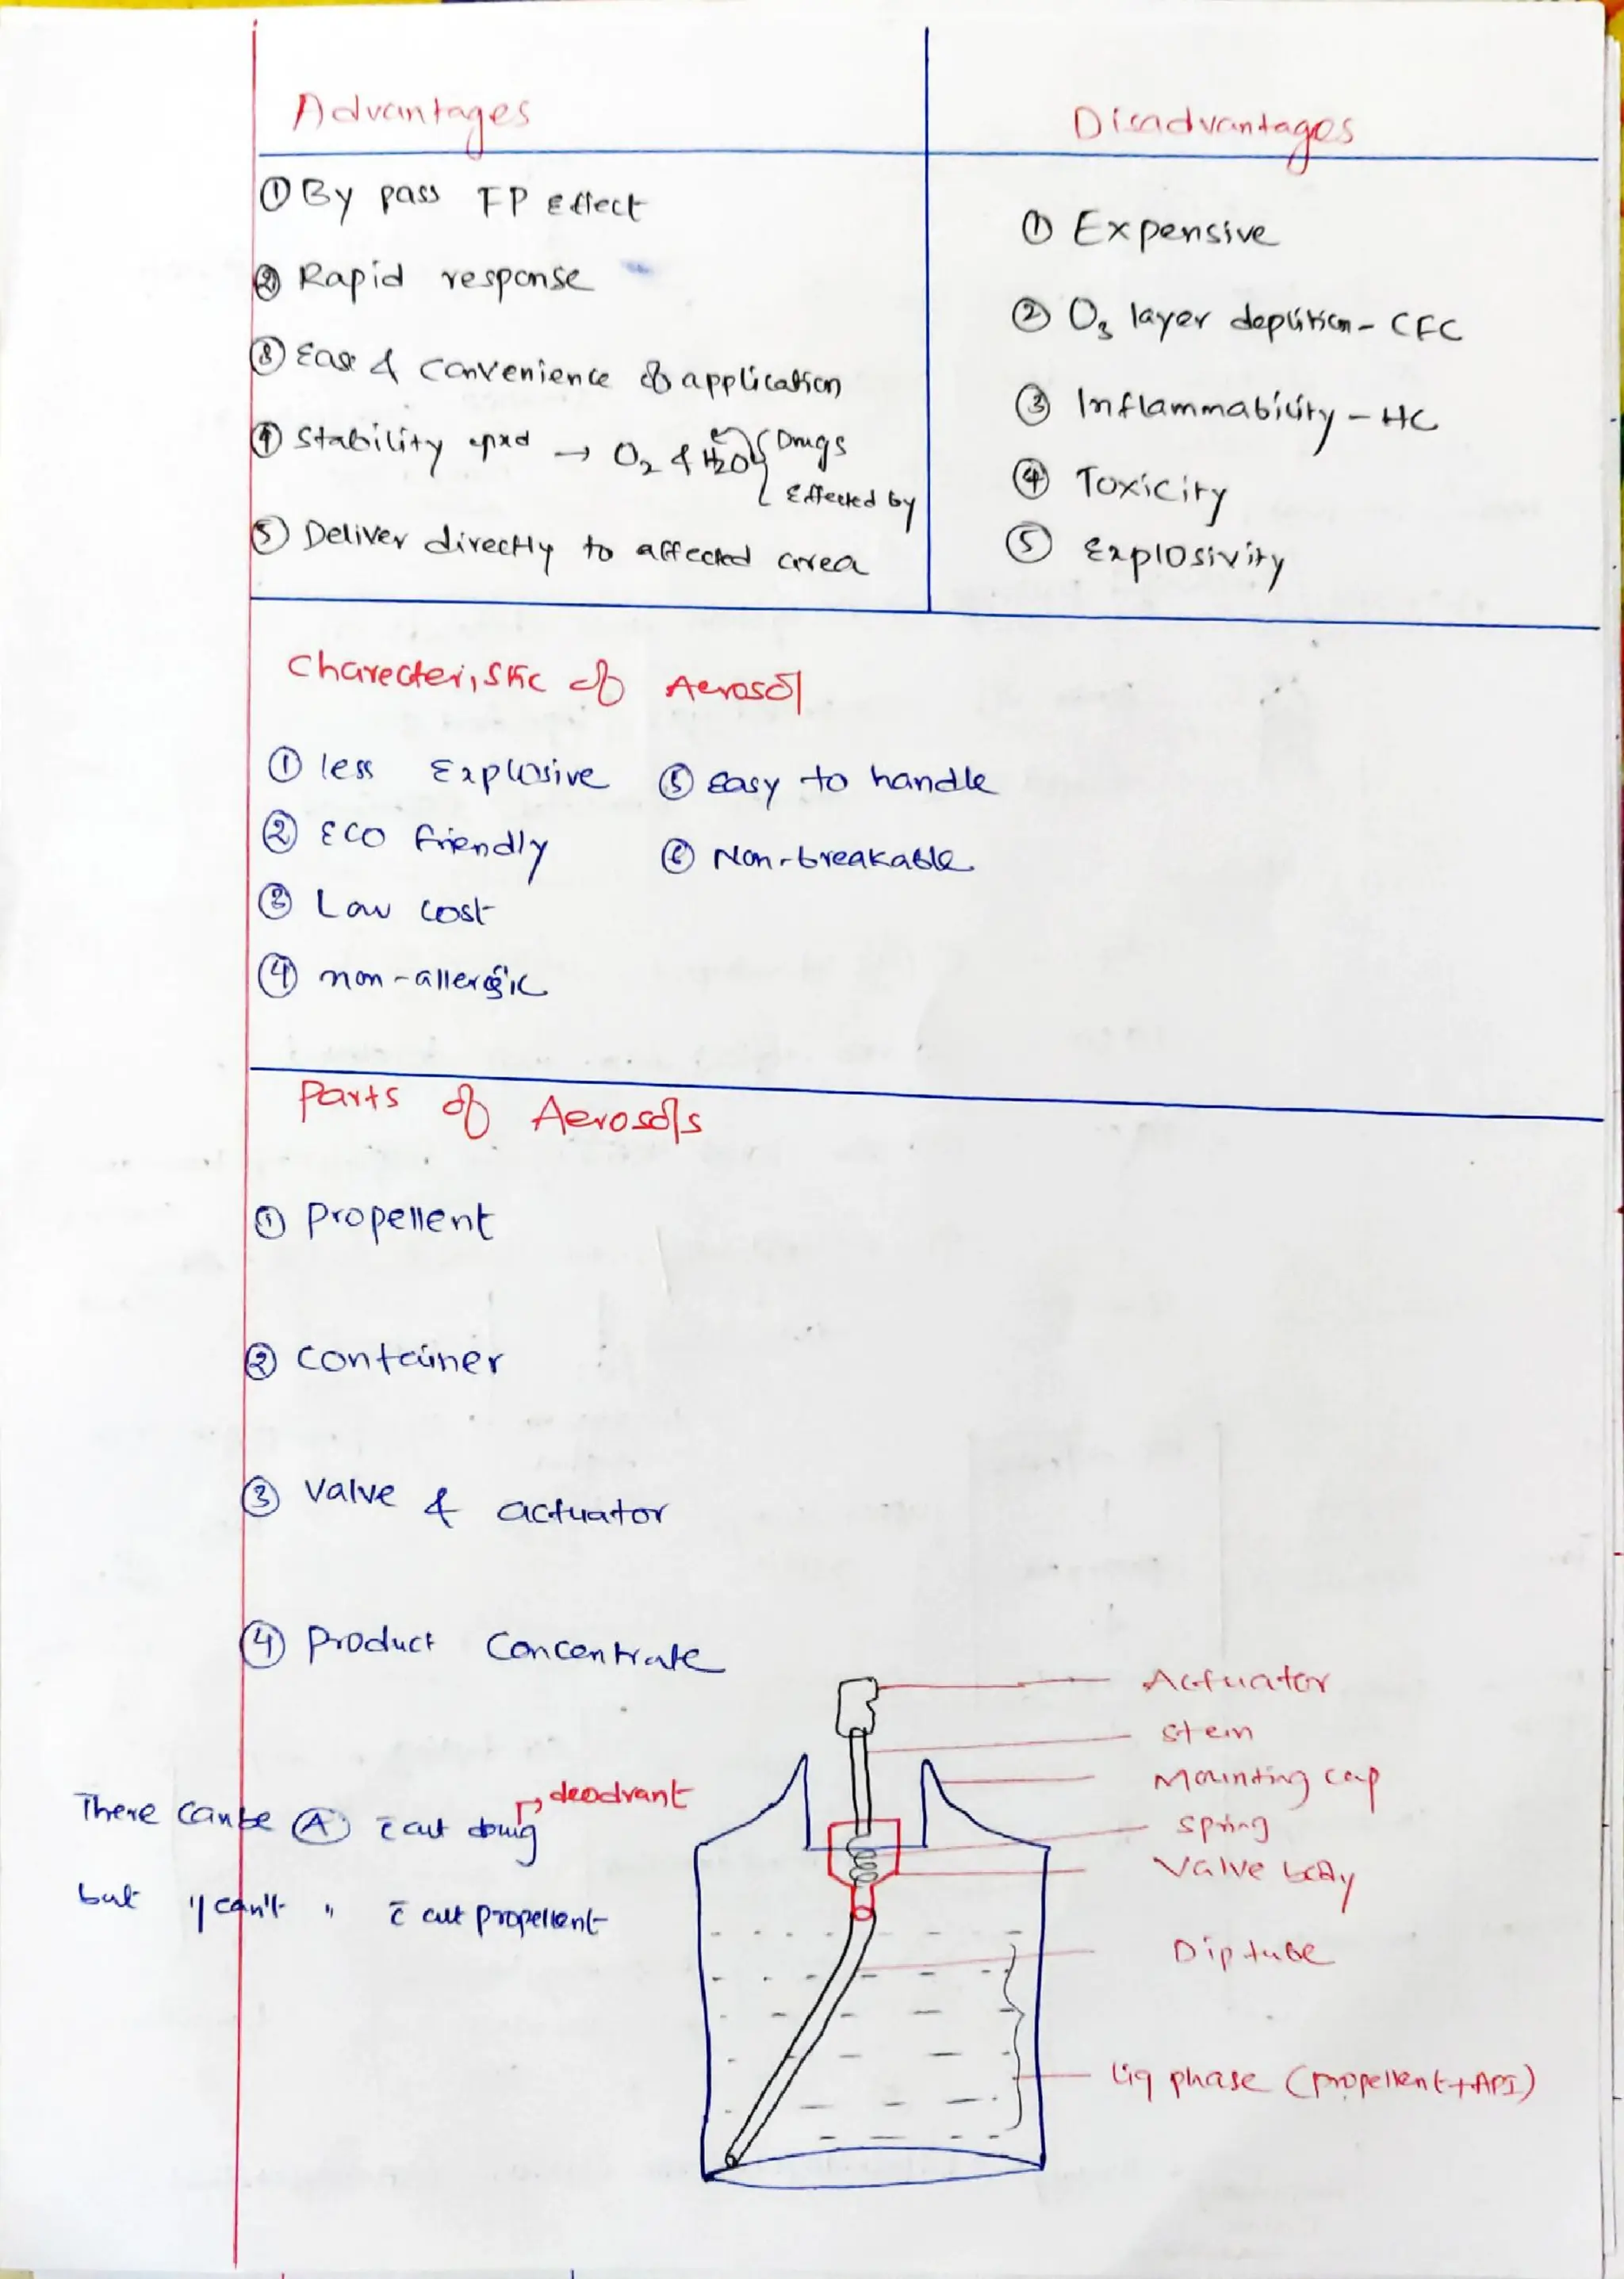 Advantages
① By pass FP Effect
② Rapid response
③ Ease & convenience of application
④ Stability → O₂ & H₂O { Drugs
Effected by
⑤ Deliver directly to affected area
Disadvantages
① Expensive
② O₃ layer depletion - CFC
③ Inflammability - HC
④ Toxicity
⑤ Explosivity
Charecteristic of Aerosol
① less Explosive
② Eco friendly
③ Low cost
④ non-allergic
⑤ Easy to handle
⑥ Non-breakable
Parts of Aerosols
① Propellent
② container
③ Valve & actuator
④ Product Concentrate
There can be Ⓐ c̄ out drug → deodrant
but " can't " c̄ out propellent
Actuator
Stem
Mounting cap
Spring
Valve body
Dip tube
Liq phase (propellent + API)